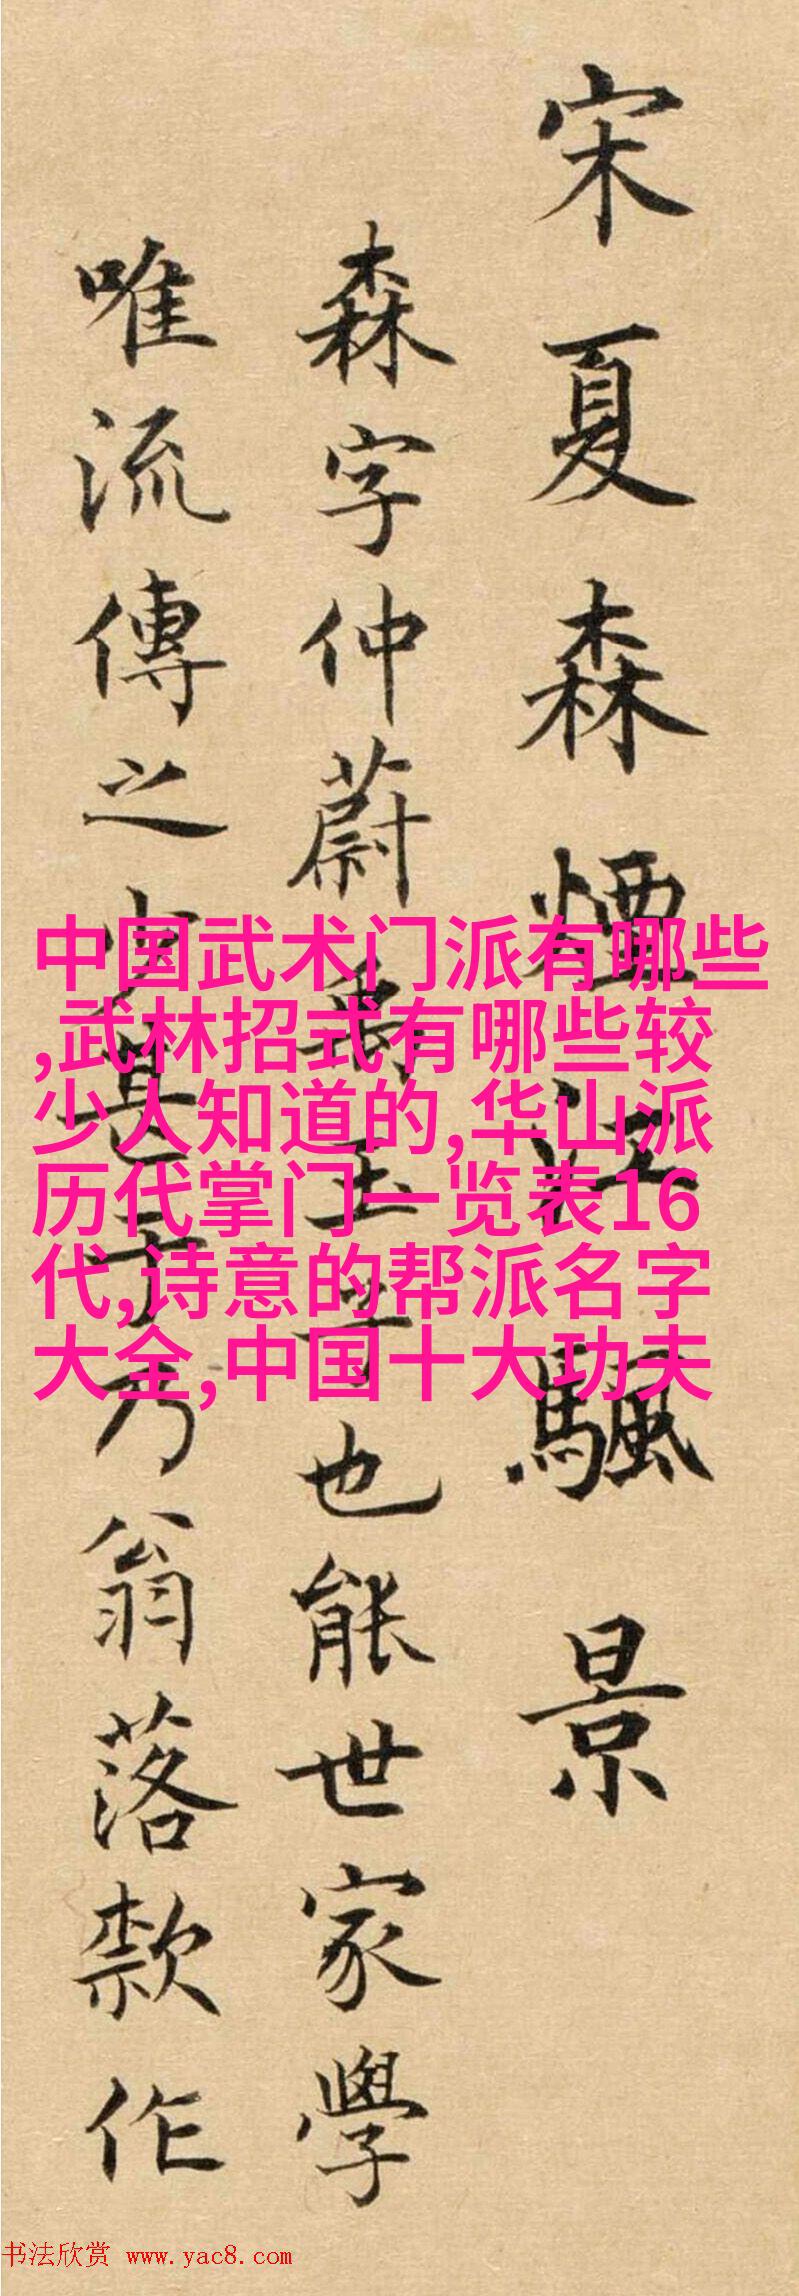 宋夏森煙江颿景
森字仲蔚禹玉子也能世家學
唯流傳之少甚子乃翁落款作
中国武术门派有哪些
,武林招式有哪些较
少人知道的,华山派
历代掌门一览表16
代,诗意的帮派名字
大全,中国十大功夫
书法欣赏 www.yac8.com